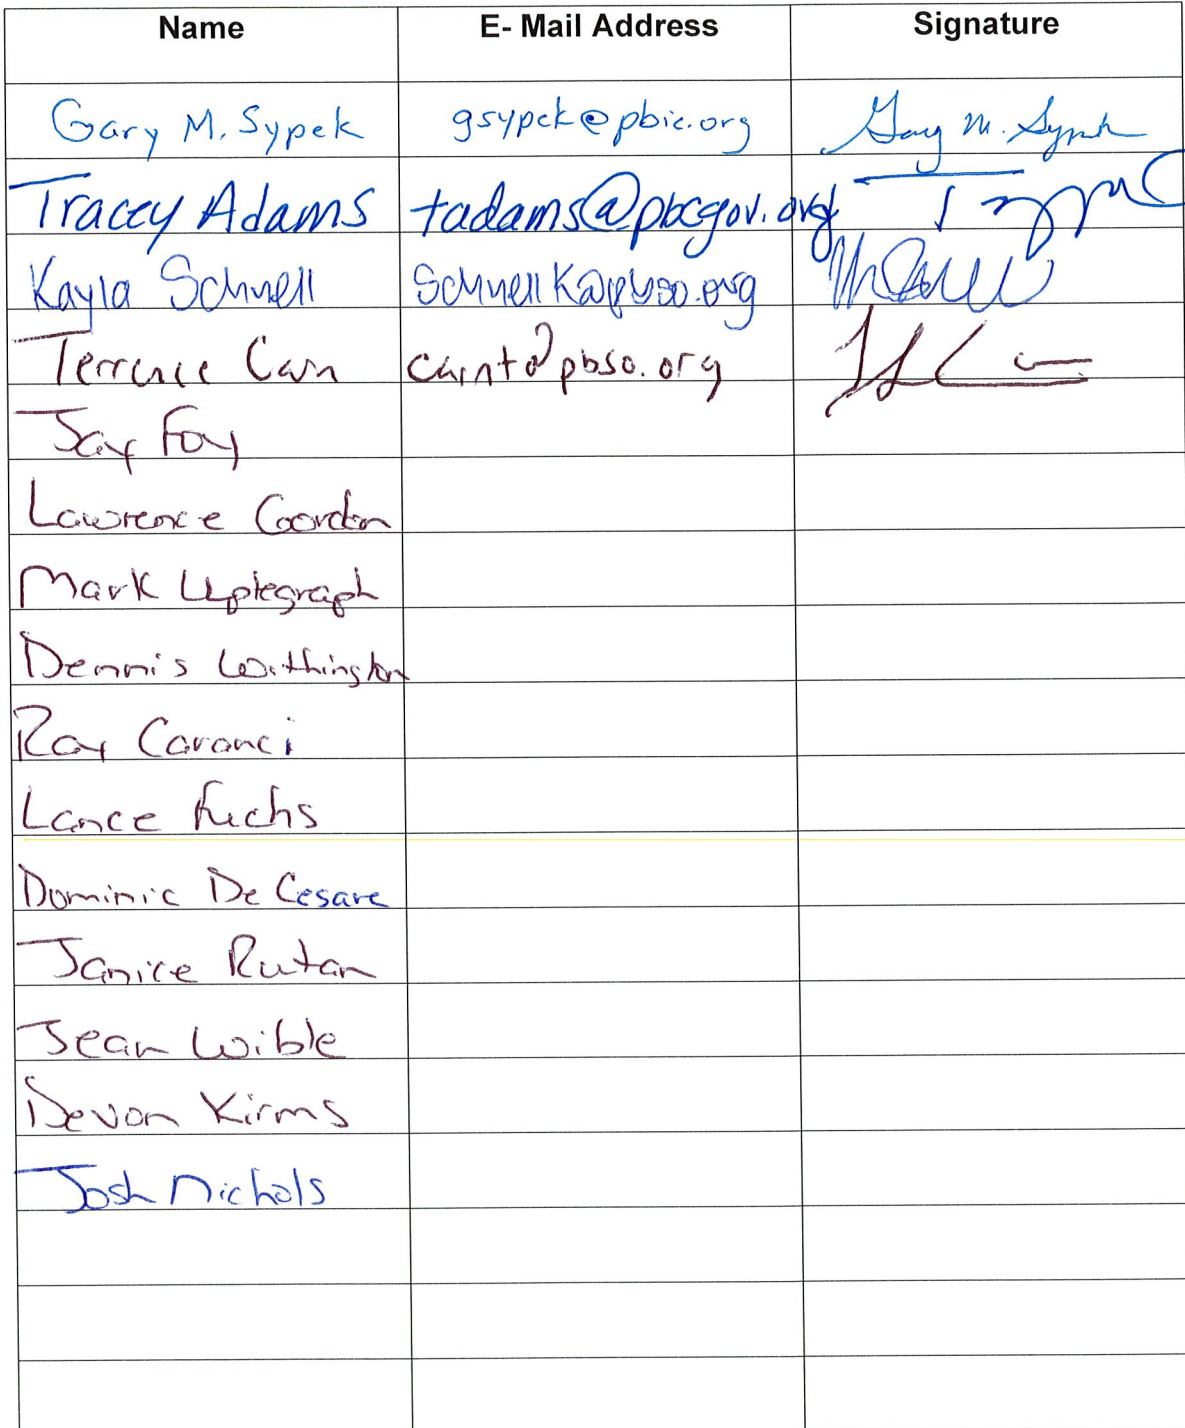 Name E- Mail Address Signature
Gary M. Sypek gsypek@pbie.org Gary M. Sypek
Tracey Adams tadams@pbcgov.org
Kayla Schnell Schnellk@pbso.org
Terrence Cain caint@pbso.org
Jay Foy
Lawrence Gordon
Mark Uptegraph
Dennis Withington
Ray Caranci
Lance Fuchs
Dominic De Cesare
Janice Rutan
Jean Wible
Devon Kirms
Josh Nichols